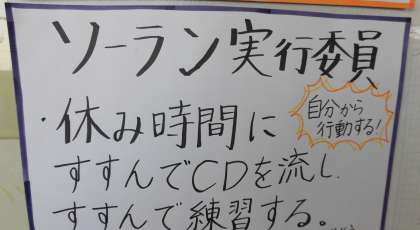 ソーラン実行委員
・休み時間に
自分から
行動する!
すすんでCDを流し、
すすんで練習する。